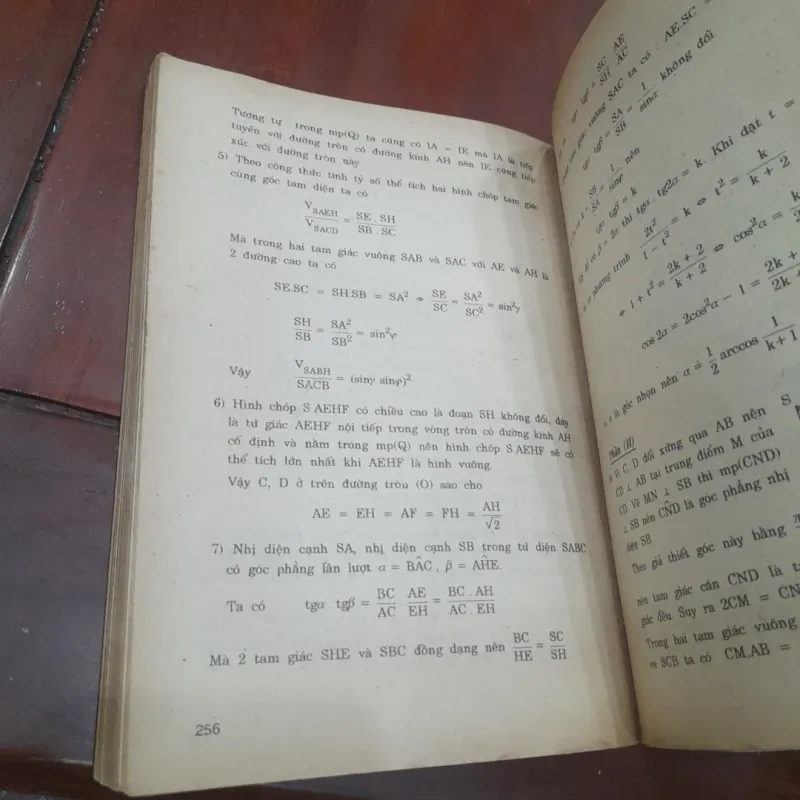 Tương tự trong mp(Q) ta cũng có IA = IE mà IA là tiếp
tuyến với đường tròn có đường kính AH nên IE cũng tiếp
xúc với đường tròn này
5) Theo công thức tính tỷ số thể tích hai hình chóp tam giác
cùng góc tam diện ta có
V_SAEH / V_SACD = SE . SH / SB . SC
Mà trong hai tam giác vuông SAB và SAC với AE và AH là
2 đường cao ta có
SE.SC = SH.SB = SA² ⇒ SE/SC = SA²/SC² = sin²γ
SH/SB = SA²/SB² = sin²φ
Vậy V_SABH / SACB = (sinγ sinφ)²
6) Hình chóp S AEHF có chiều cao là đoạn SH không đổi, đáy
là tứ giác AEHF nội tiếp trong vòng tròn có đường kính AH
cố định và nằm trong mp(Q) nên hình chóp S AEHF sẽ có
thể tích lớn nhất khi AEHF là hình vuông.
Vậy C, D ở trên đường tròn (O) sao cho
AE = EH = AF = FH = AH/√2
7) Nhị diện cạnh SA, nhị diện cạnh SB trong tứ diện SABC
có góc phẳng lần lượt α = BÂC , β = AĤE.
Ta có tgα . tgβ = BC/AC . AE/EH = BC . AH / AC . EH
Mà 2 tam giác SHE và SBC đồng dạng nên BC/HE = SC/SH
256
SC/SH AE/AC
tam giác vuông SAC ta có : AE.SC =
tgβ = SA/SB = 1/sinα không đổi.
k = SB/SA = 1/sinφ nên
tgα tgβ = k
β = 2α thì tgα . tg2α = k. Khi đặt t =
phương trình 2t²/1 - t² = k ⇔ t² = k/k + 2
⇔ 1 + t² = 2k + 2/k + 2 ⇔ cos²α = k
cos2α = 2cos²α - 1 = 2k +/2k
là góc nhọn nên α = 1/2 arccos 1/k + 1
Phần (II)
Vì C, D đối xứng qua AB nên S
CD ⊥ AB tại trung điểm M của
CD Vẽ MN ⊥ SB thì mp(CND)
⊥ SB nên CN̂D là góc phẳng nhị
diện SB
Theo giả thiết góc này bằng
nên tam giác cân CND là
giác đều. Suy ra 2CM = CN
Trong hai tam giác vuông
và SCB ta có CM.AB =